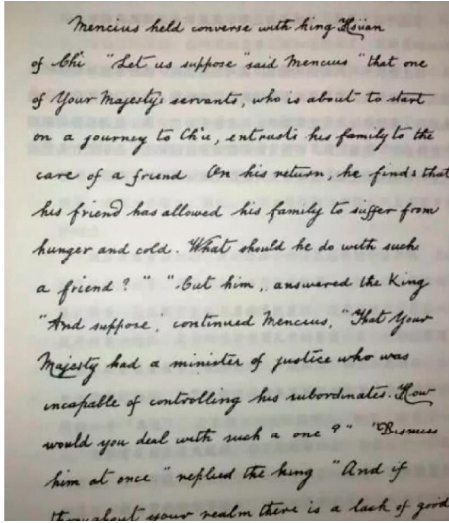 Mencius held converse with king Hsüan
of Chi "Let us suppose" said Mencius "that one
of Your Majesty's servants, who is about to start
on a journey to Ch'u, entrusts his family to the
care of a friend On his return, he finds that
his friend has allowed his family to suffer from
hunger and cold. What should he do with such
a friend?" "Cut him, answered the King
"And suppose," continued Mencius, "That Your
Majesty had a minister of justice who was
incapable of controlling his subordinates. How
would you deal with such a one?" "Dismiss
him at once" replied the king "And if
throughout your realm there is a lack of good